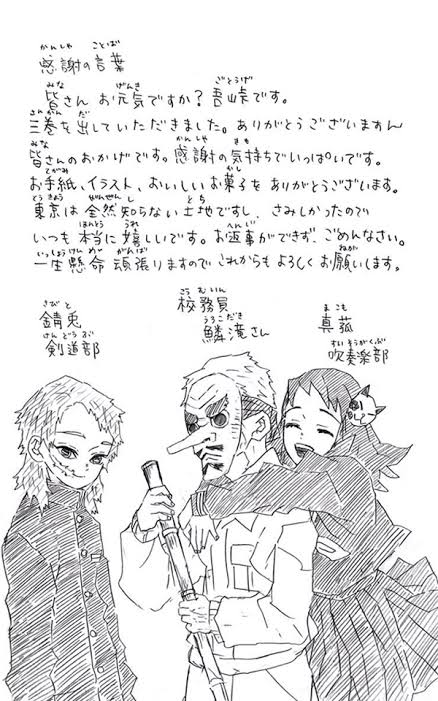 感謝の言葉
皆さん お元気ですか？吾峠です。
三巻を出していただきました。ありがとうございますん
皆さんのおかげです。感謝の気持ちでいっぱいです。
お手紙、イラスト、おいしいお菓子をありがとうございます。
東京は全然知らない土地ですし、さみしかったので
いつも本当に嬉しいです。お返事ができず、ごめんなさい。
一生懸命頑張りますのでこれからもよろしくお願いします。
錆兎
剣道部
校務員
鱗滝さん
真菰
吹奏楽部